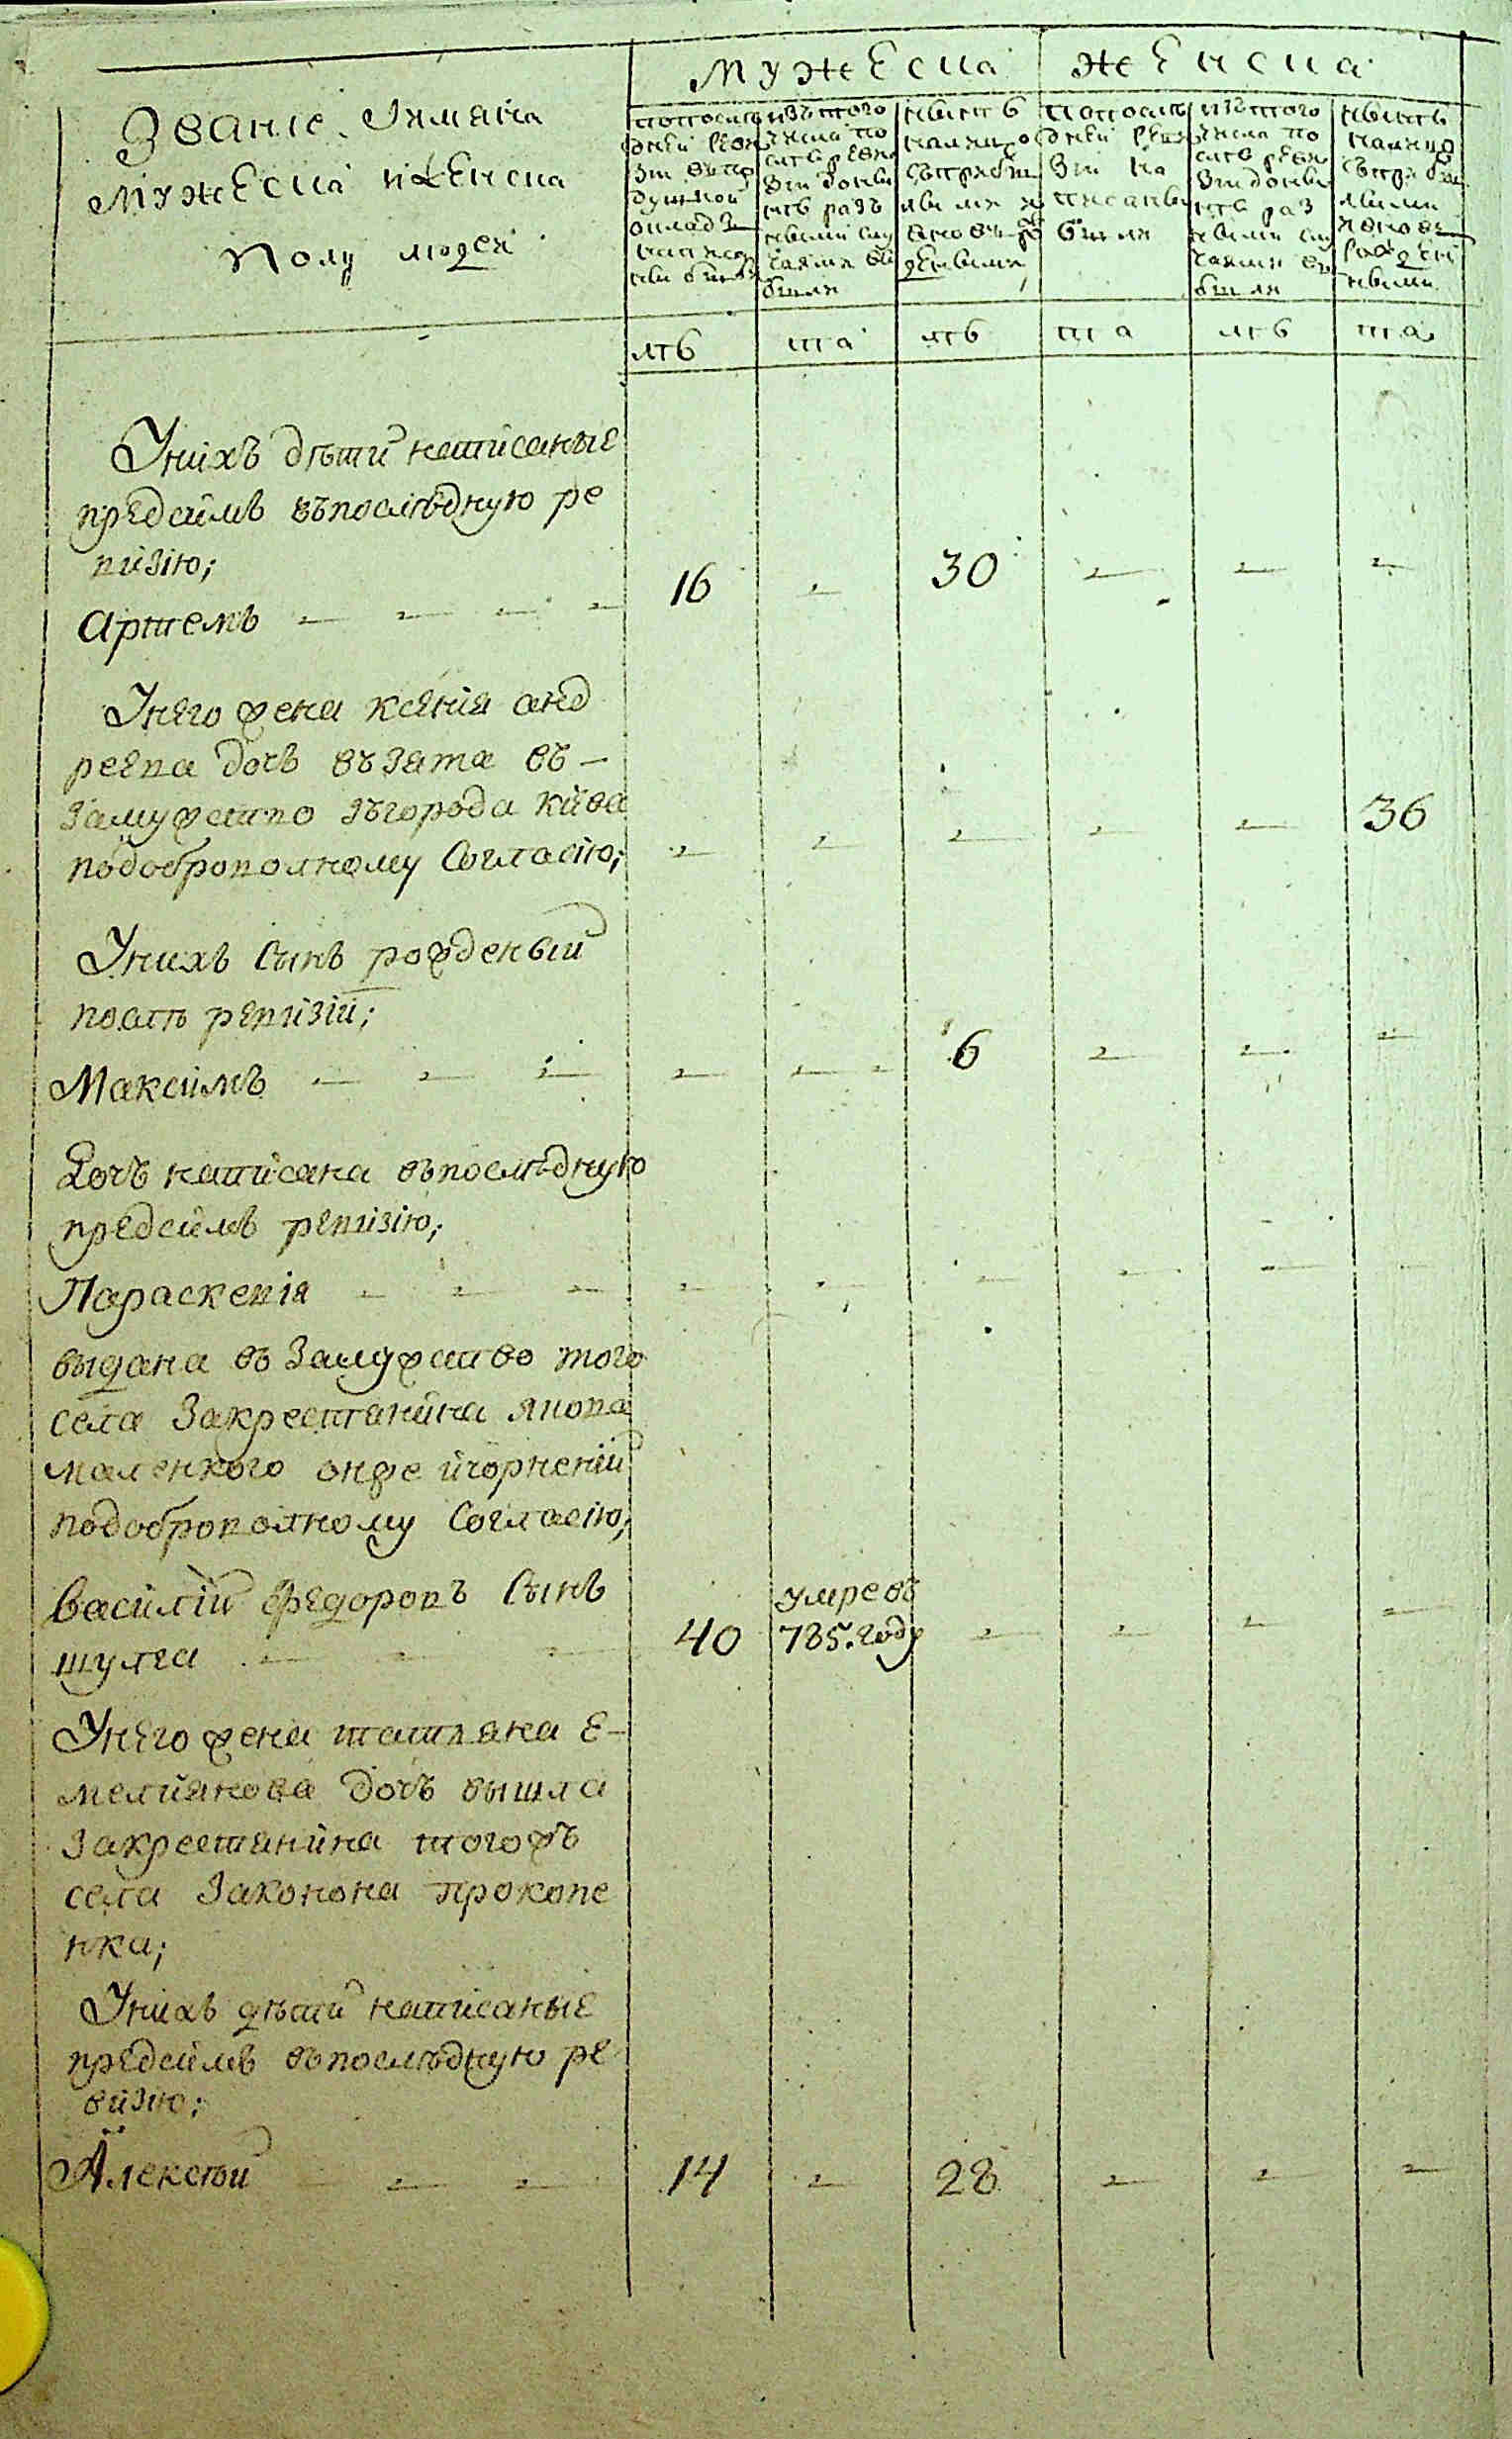 мужеска женска
Звание. Имяна
мужеска и женска
Полу людей
попослѣдней ревизіи въ подушной окладъ написаны были
изътого числа по слѣ ревизіи до ныне разными случаями выбыли
ныне в наличности съ прибылыми и вновь рожденными
попослѣдней ревизіи написаны были
изътого числа по слѣ ревизіи до ныне разными случаями выбыли
нынѣ наличность съ прибылыми и вновь рожденными
лѣ та лѣ та лѣ та
Униxъ дѣти написаные
предсимъ въпослѣдную ре
визію;
Артемъ 16 - 30 - - -
Унего жена ксенія анд
реева дочъ възята въ
замужство зъгорода Кіева
подоброволному Согласію; - - - - - 36
Унихъ Сынъ рожденый
послѣ ревизіи;
Максимъ - - 6 - - -
Дочъ написана въпослѣдную
предсимъ ревизію;
Параскевія - - - - - -
выдана въ Замужство того
села Закрестянина якова
маленкого онже ичорненій
подоброволному Согласію;
Василій Федоровъ Сынъ умре въ
шулга 40 785. году - - - -
Унего жена татияна е-
мелиянова дочъ вышла
Закрестянина тогожъ
села Законона Прокопе
нка;
Унихъ дѣти написаные
предсимъ въпослѣдную ре
визію;
Алексѣй 14 - 28 - - -